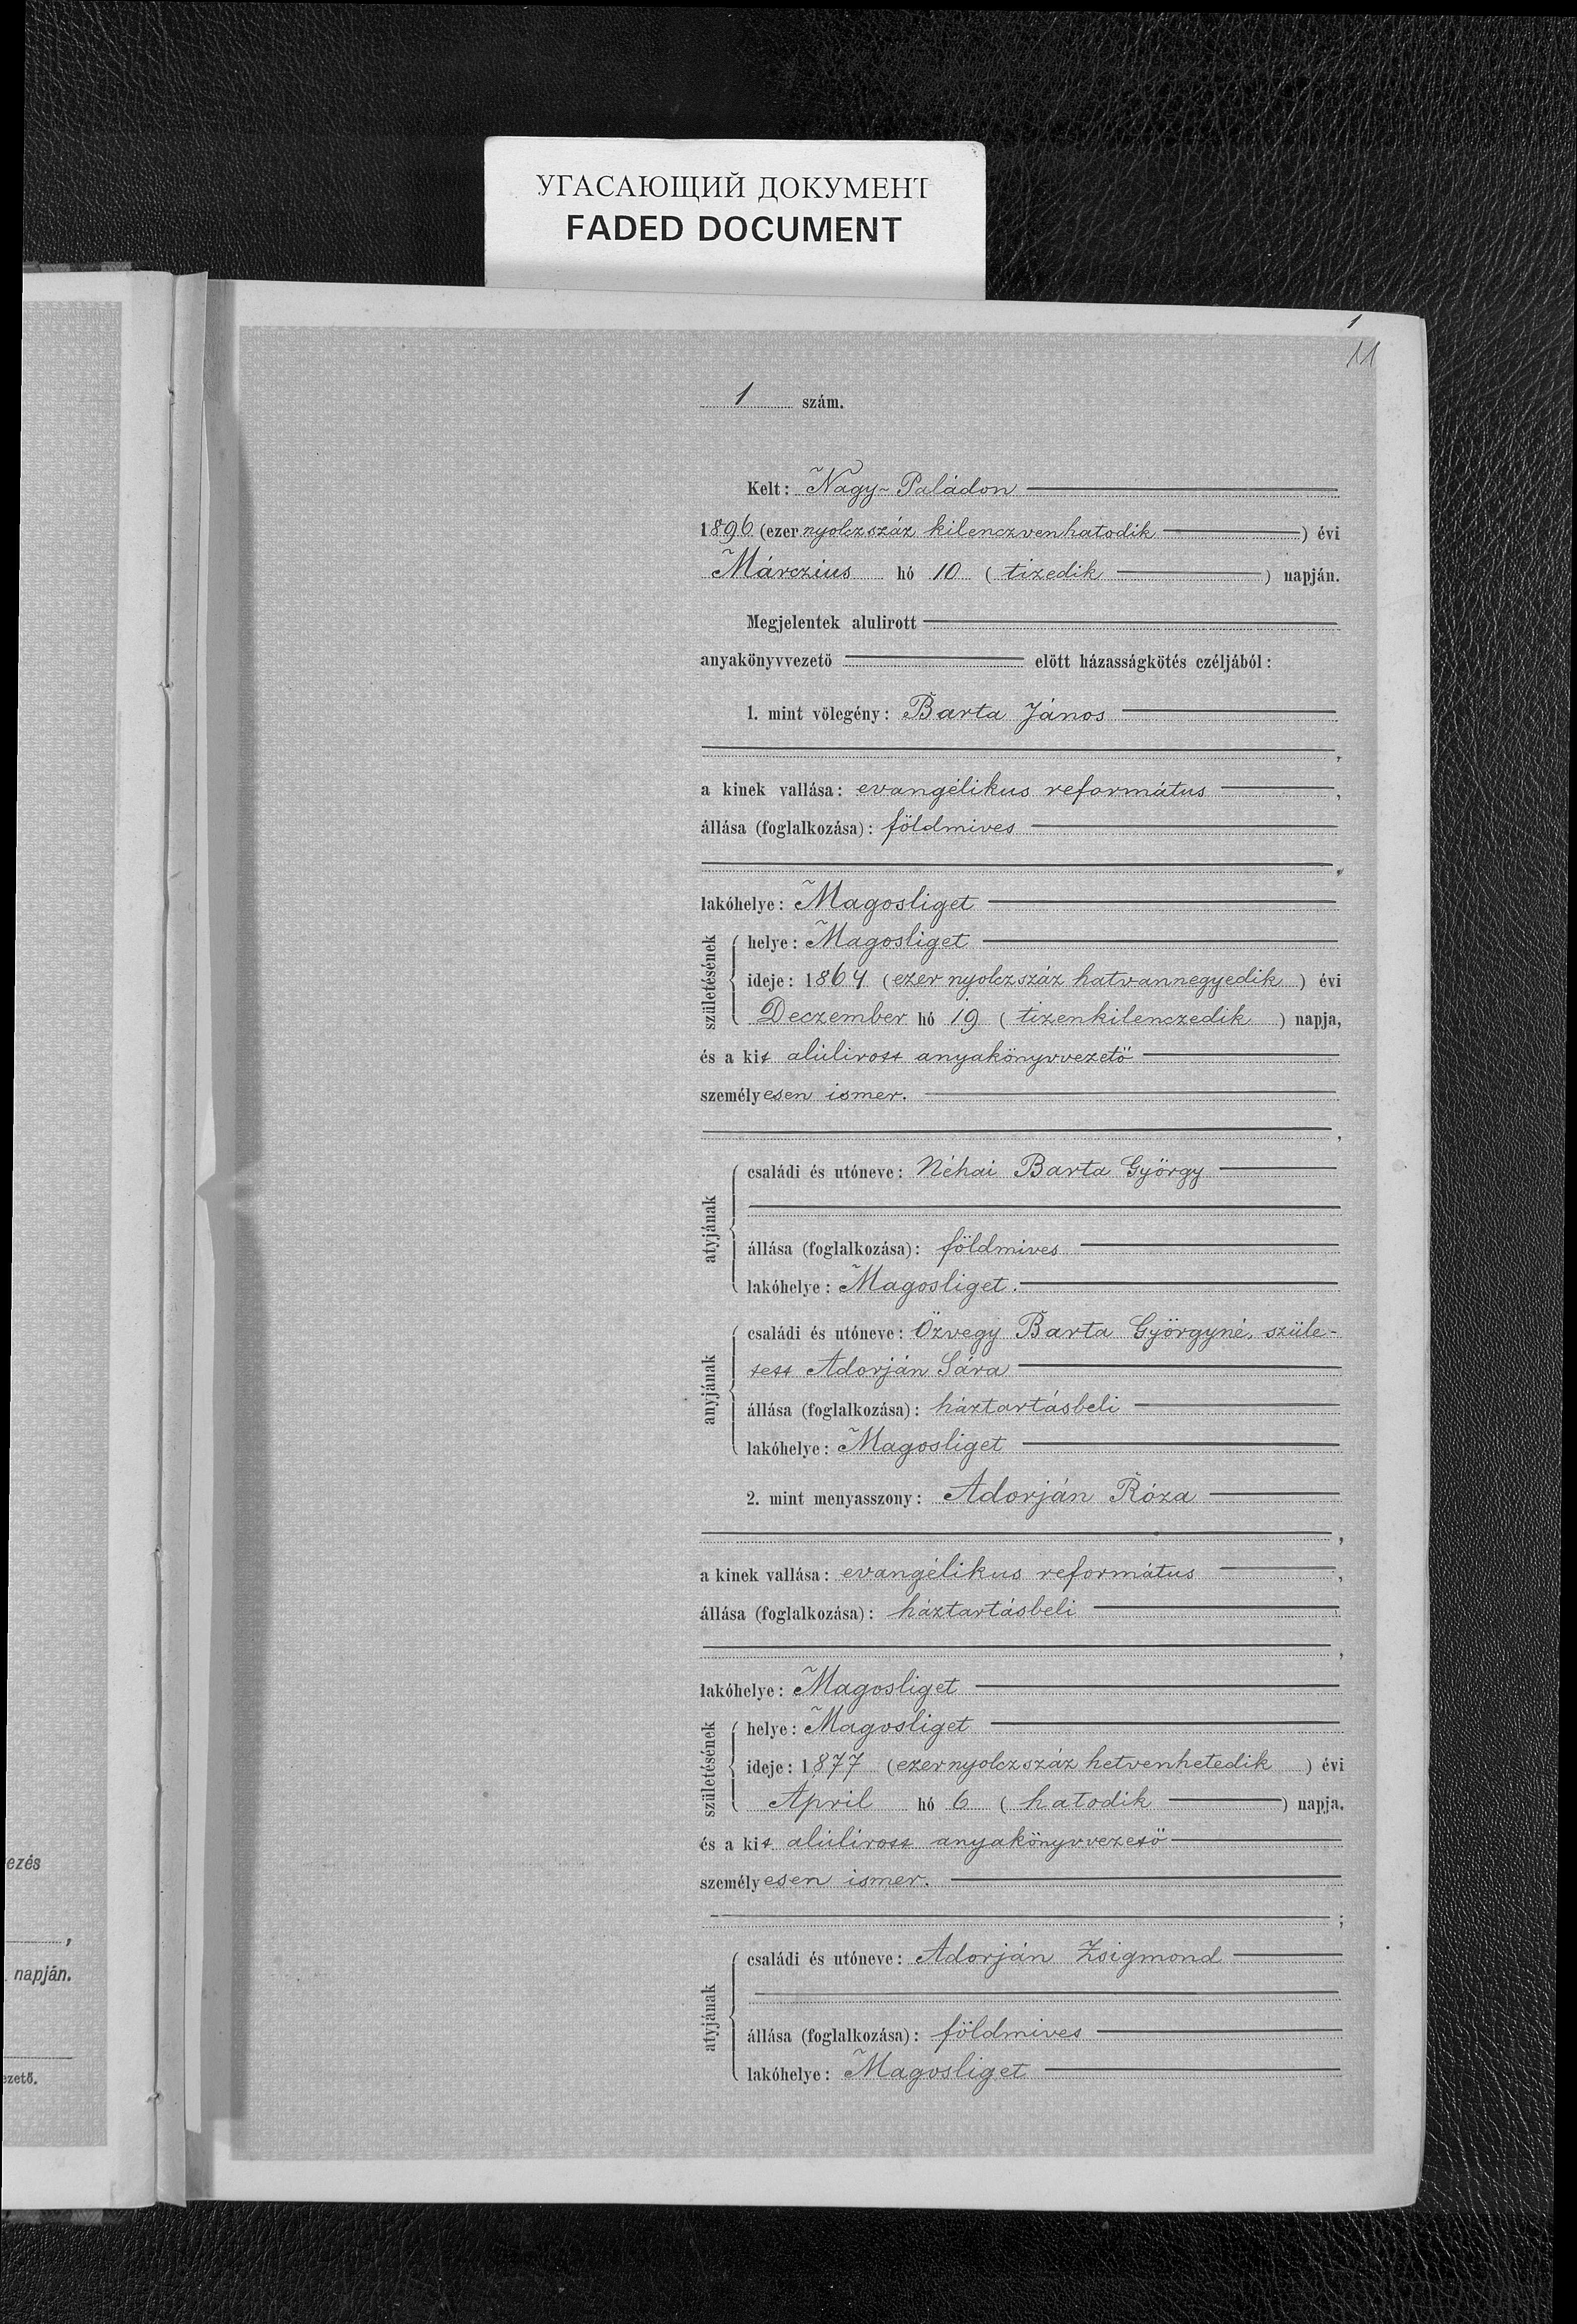 УГАСАЮЩИЙ ДОКУМЕНТ
FADED DOCUMENT
1
11
1 szám.
Kelt: Nagy-Paládon
1896 (ezer nyolczszáz kilenczvenhatodik) évi
Márczius hó 10 (tizedik) napján.
Megjelentek alulirott
anyakönyvvezető előtt házasságkötés czéljából:
1. mint vőlegény: Barta János
a kinek vallása: evangélikus református,
állása (foglalkozása): földmives
lakóhelye: Magosliget
születésének
helye: Magosliget
ideje: 1864 (ezer nyolczszáz hatvannegyedik) évi
Deczember hó 19 (tizenkilenczedik) napja,
és a kit alúlirott anyakönyvvezető
személyesen ismer.
atyjának
családi és utóneve: Néhai Barta György
állása (foglalkozása): földmives
lakóhelye: Magosliget.
anyjának
családi és utóneve: Özvegy Barta Györgyné, szüle-
tett Adorján Sára
állása (foglalkozása): háztartásbeli
lakóhelye: Magosliget
2. mint menyasszony: Adorján Róza
a kinek vallása: evangélikus református,
állása (foglalkozása): háztartásbeli
lakóhelye: Magosliget
születésének
helye: Magosliget
ideje: 1877 (ezernyolczszáz hetvenhetedik) évi
Április hó 6 (hatodik) napja.
és a kit alúlirott anyakönyvvezető
személyesen ismer.
atyjának
családi és utóneve: Adorján Zsigmond
állása (foglalkozása): földmives
lakóhelye: Magosliget
ezés
napján.
ezető.